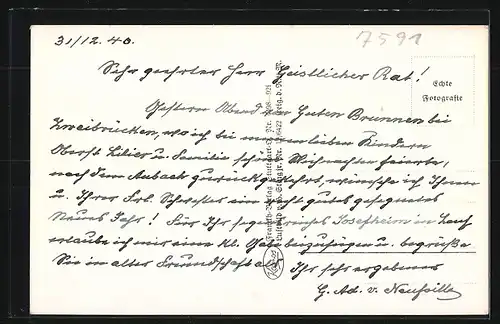 31/12.40.
7591
Sehr geehrter Herr Geistlicher Rat!
Echte
Fotografie
Gestern Abend von Guten Brunnen bei
Zweibrücken, wo ich bei meinen lieben Kindern
Oberst Lilier u. Familie schöne Weihnachten feierte,
nach dem Ansbach zurückgekehrt, wünsche ich Ihnen
u. Ihrer Frl. Schwester ein recht gutes gesegnetes
Neues Jahr! Für Ihr segensreiches Josefheim in
erlaube ich mir eine kl. Gabe beizufügen u. begrüße
Sie in alter Freundschaft als Ihr sehr ergebener
G. Ad. v. Neufville